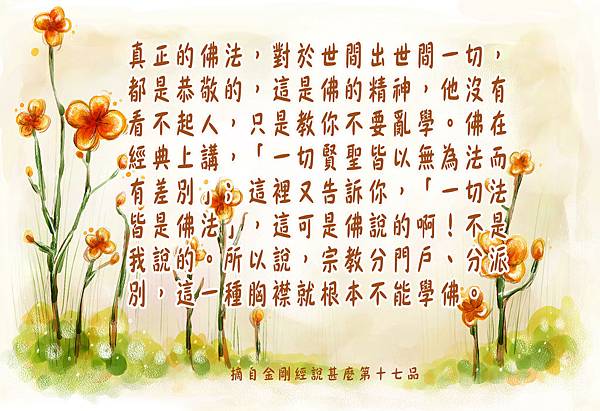 真正的佛法，對於世間出世間一切，
都是恭敬的，這是佛的精神，他沒有
看不起人，只是教你不要亂學。佛在
經典上講，「一切賢聖皆以無為法而
有差別」；這裡又告訴你，「一切法
皆是佛法」，這可是佛說的啊！不是
我說的。所以說，宗教分門戶、分派
別，這一種胸襟就根本不能學佛。
摘自金剛經說甚麼第十七品